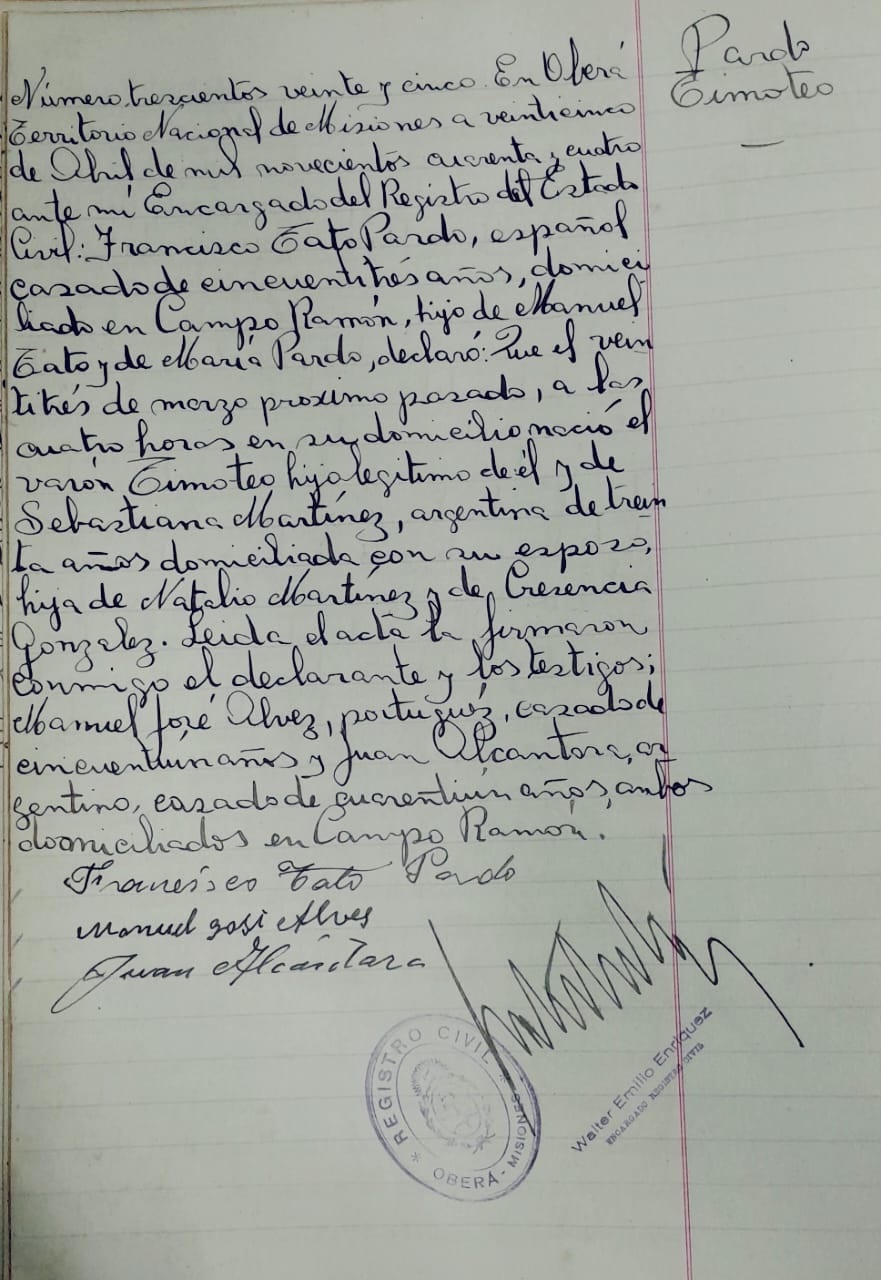 Pardo
Timoteo
Número trescientos veinte y cinco. En Oberá
Territorio Nacional de Misiones a veinticinco
de Abril de mil novecientos cuarenta y cuatro
ante mí Encargado del Registro del Estado
Civil: Francisco Tato Pardo, español
casado de cincuentitrés años, domici
liado en Campo Ramón, hijo de Manuel
Tato y de María Pardo, declaró: Que el vein
titrés de marzo proximo pasado, a las
cuatro horas en su domicilio nació el
varón Timoteo hijo legitimo de él y de
Sebastiana Martínez, argentina de trein
ta años domiciliada con su esposo,
hija de Natalio Martínez y de Cresencia
Gonzalez. Leida el acta la firmaron
conmigo el declarante y los testigos;
Manuel José Alvez, portugués, casado de
cincuentiún años y Juan Alcantara, ar
gentino, casado de cuarentiún años, ambos
domiciliados en Campo Ramón.
Francisco Tato Pardo
Manuel José Alves
Juan Alcántara
* REGISTRO CIVIL *
OBERÁ - MISIONES
Walter Emilio Enriquez
ENCARGADO REGISTRO CIVIL